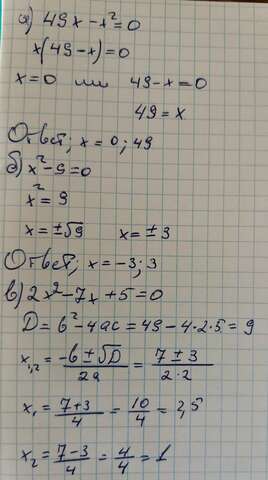 а) 49x - x² = 0
x(49 - x) = 0
x = 0 или 49 - x = 0
49 = x
Ответ; x = 0; 49
б) x² - 9 = 0
x² = 9
x = ±√9 x = ±3
Ответ; x = -3; 3
в) 2x² - 7x + 5 = 0
D = b² - 4ac = 49 - 4·2·5 = 9
x₁,₂ = (-b ± √D)/2a = (7 ± 3)/2·2
x₁ = (7+3)/4 = 10/4 = 2,5
x₂ = (7-3)/4 = 4/4 = 1